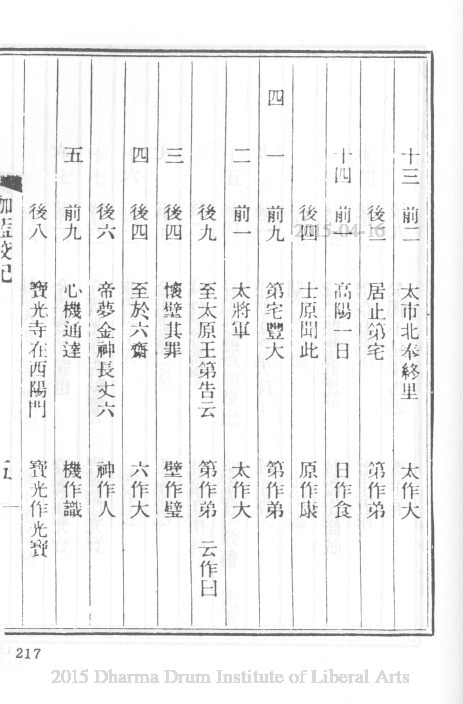 十三 前二 太市北奉終里 太作大
後三 居止第宅 第作弟
十四 前一 高陽一日 日作食
後四 士原聞此 原作康
四 一 前九 第宅豐大 第作弟
二 前一 太將軍 太作大
後九 至太原王第告云 第作弟 云作曰
三 後四 懷璧其罪 壁作璧
四 後四 至於六齋 六作大
後六 帝夢金神長丈六 神作人
五 前九 心機通達 機作識
後八 寶光寺在西陽門 寶光作光寶
伽藍校記 五
217
2015-04-16
2015 Dharma Drum Institute of Liberal Arts